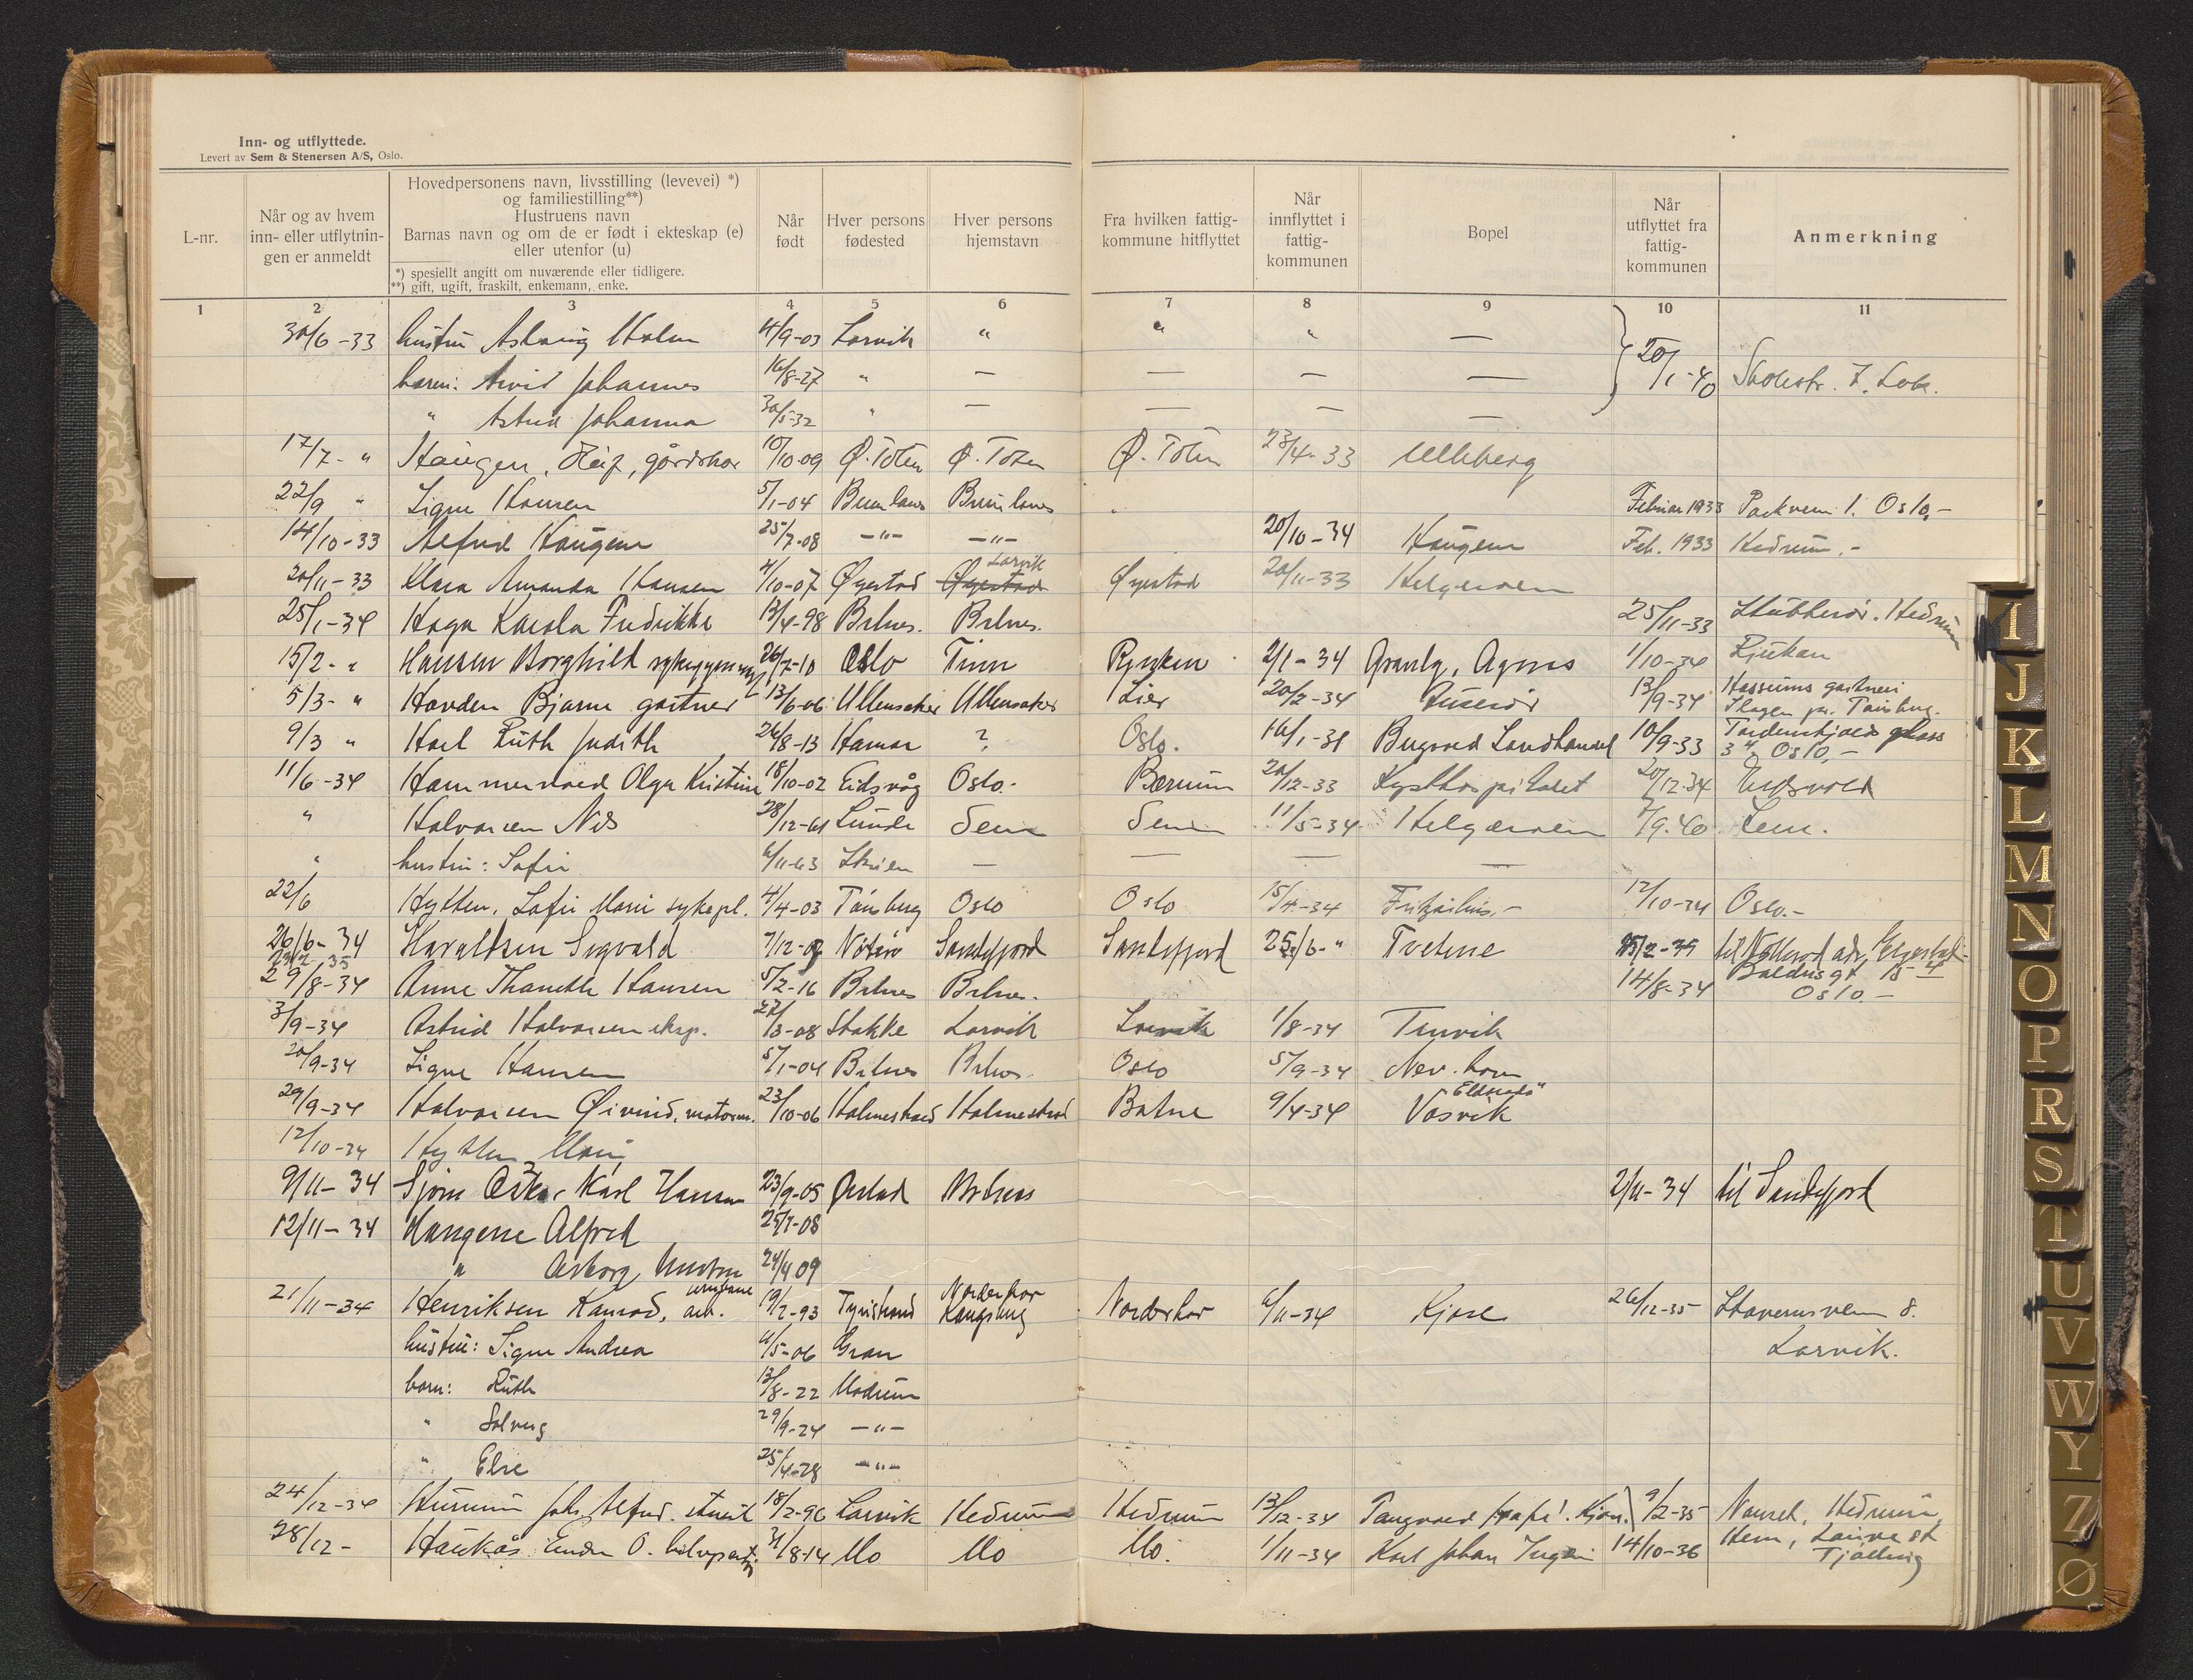 Inn- og utflyttede.
Levert av Sem & Stenersen A/S, Oslo.
L-nr.
Når og av hvem inn- eller utflytnin- gen er anmeldt
Hovedpersonens navn, livsstilling (levevei) *)
og familiestilling**)
Hustruens navn
Barnas navn og om de er født i ekteskap (e)
eller utenfor (u)
*) spesiellt angitt om nuværende eller tidligere.
**) gift, ugift, fraskilt, enkemann, enke.
Når født
Hver persons fødested
Hver persons hjemstavn
Fra hvilken fattig- kommune hitflyttet
Når innflyttet i fattig- kommunen
Bopel
Når utflyttet fra fattig- kommunen
Anmerkning
1 2 3 4 5 6 7 8 9 10 11
30/6-33 hustru Aslaug Holm 4/9-03 Larvik " " " —
barn: Arvid Johannes 16/8-27 " — — — — 20/1-40
" Astrid Johanna 30/5-32 " — — — —
17/7- " Haugen, gårdskar 10/10-09 Ø. Toten Ø. Toten Ø. Toten 23/4-33 Ulleberg
22/9 " Signe Hansen 5/1-04 Brunlanes Brunlanes Februar 1933 Parkveien 1. Oslo,-
14/10-33 Alfred Haugene 25/7-08 -"- -"- 20/10-34 Haugene Feb. 1933 Hedrum.-
20/11-33 Klara Amanda Hansen 4/10-07 Øyestad Øyestad Larvik Øyestad 20/11-33 Helgeroen
25/1-34 Haga Karola Fredrikke 13/4-98 Brlnes. Brlnes. 25/11-33 Hedrum
15/2- " Hansen Borghild 26/7-10 Oslo Tinn Røyken 2/1-34 Granly, Agnes 1/10-34 Rjukan
5/3- " Havden Bjarne gartner 13/6-06 Ullensaker Ullensaker Lier 20/2-34 13/9-34 Hassums gartneri
Slagen pr. Tønsberg.
9/3 " Hoel Ruth Judith 26/8-13 Hamar ? Oslo. 16/1-31 Landhandel 10/9-33 Tordenskjolds plass
3 Oslo,-
11/6-34 Hammerstad Olga Kristine 18/10-02 Eidsvåg Oslo.- Bærum 20/12-33 Kysthospitalet 20/12-34 Eidsvold
" Halvorsen Nils 28/12-61 Lunde Sem Sem 11/5-34 Helgeroen 7/9.40 Sem.
" hustru: Sofie 6/11-63 Skien — — — —
22/6 Hytten, Sofie Marie sykepl. 4/4-03 Tønsberg Oslo Oslo 15/4-34 12/10-34 Oslo.-
26/6-34 Haraldsen Sigvald 7/12-07 Nøterø Sandefjord Sandefjord 25/6-" Tvetene 15/2-35 til
29/8-34 Anne Hansen 5/2-16 Brlnes Brlnes. 14/8-34 Baldersgt. 15
Oslo.-
3/9-34 Astrid Halvorsen eksp. 27/3-08 Stokke Larvik Larvik 1/8-34 Tenvik
20/9-34 Signe Hansen 5/1-04 Brlnes Brlnes. Oslo 5/9-34
29/9-34 Halvorsen Øivind, 23/10-06 Holmestrand Holmestrand Botne 9/4-34 Vasvik
12/10-34 Hytten, Marie
9/11-34 Oskar Karl Hansen 23/9-05 Brlnes 2/11-34 til Sandefjord
12/11-34 Haugene Alfred 25/7-08
" Asborg hustru 24/4 09
21/11-34 Henriksen Konrad, arb. 19/2-93 Tyristrand Norderhov Kongsberg Norderhov 6/11-34 Kjose 26/12-35 Stavernsveien 8.
Larvik.
hustru: Signe Andrea 4/5-06 Gran
barn: Ruth 13/8-22 Modum
" Solveig 29/9-24 -"-
" Else 25/4-28 -"-
24/12-34 Hummin Joh. Alfred. 18/2-96 Larvik Hedrum Hedrum 13/12-34 9/2-35 Nanset, Hedrum,
28/12- Haukås Endre O. 31/8-14 Mo Mo Mo. 1/11-34 Karl Johan 14/10-36 Hem, Lauve st
Tjølling
I
J
K
L
M
N
O
P
R
S
T
U
V
W
Y
Z
Ø